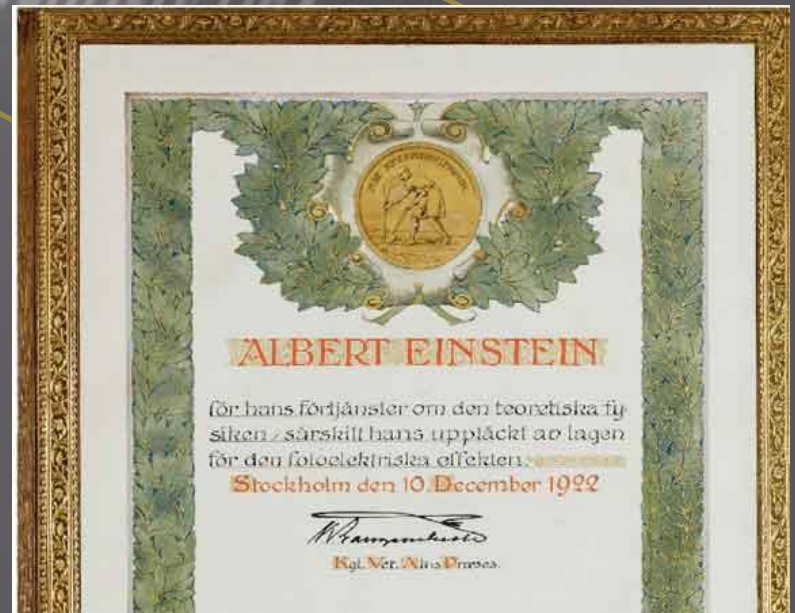 ALBERT EINSTEIN
för hans förtjänster om den teoretiska fy-
siken, särskilt hans upptäckt av lagen
för den fotoelektriska effekten.
Stockholm den 10 December 1922
Kgl. Vet. Præses.